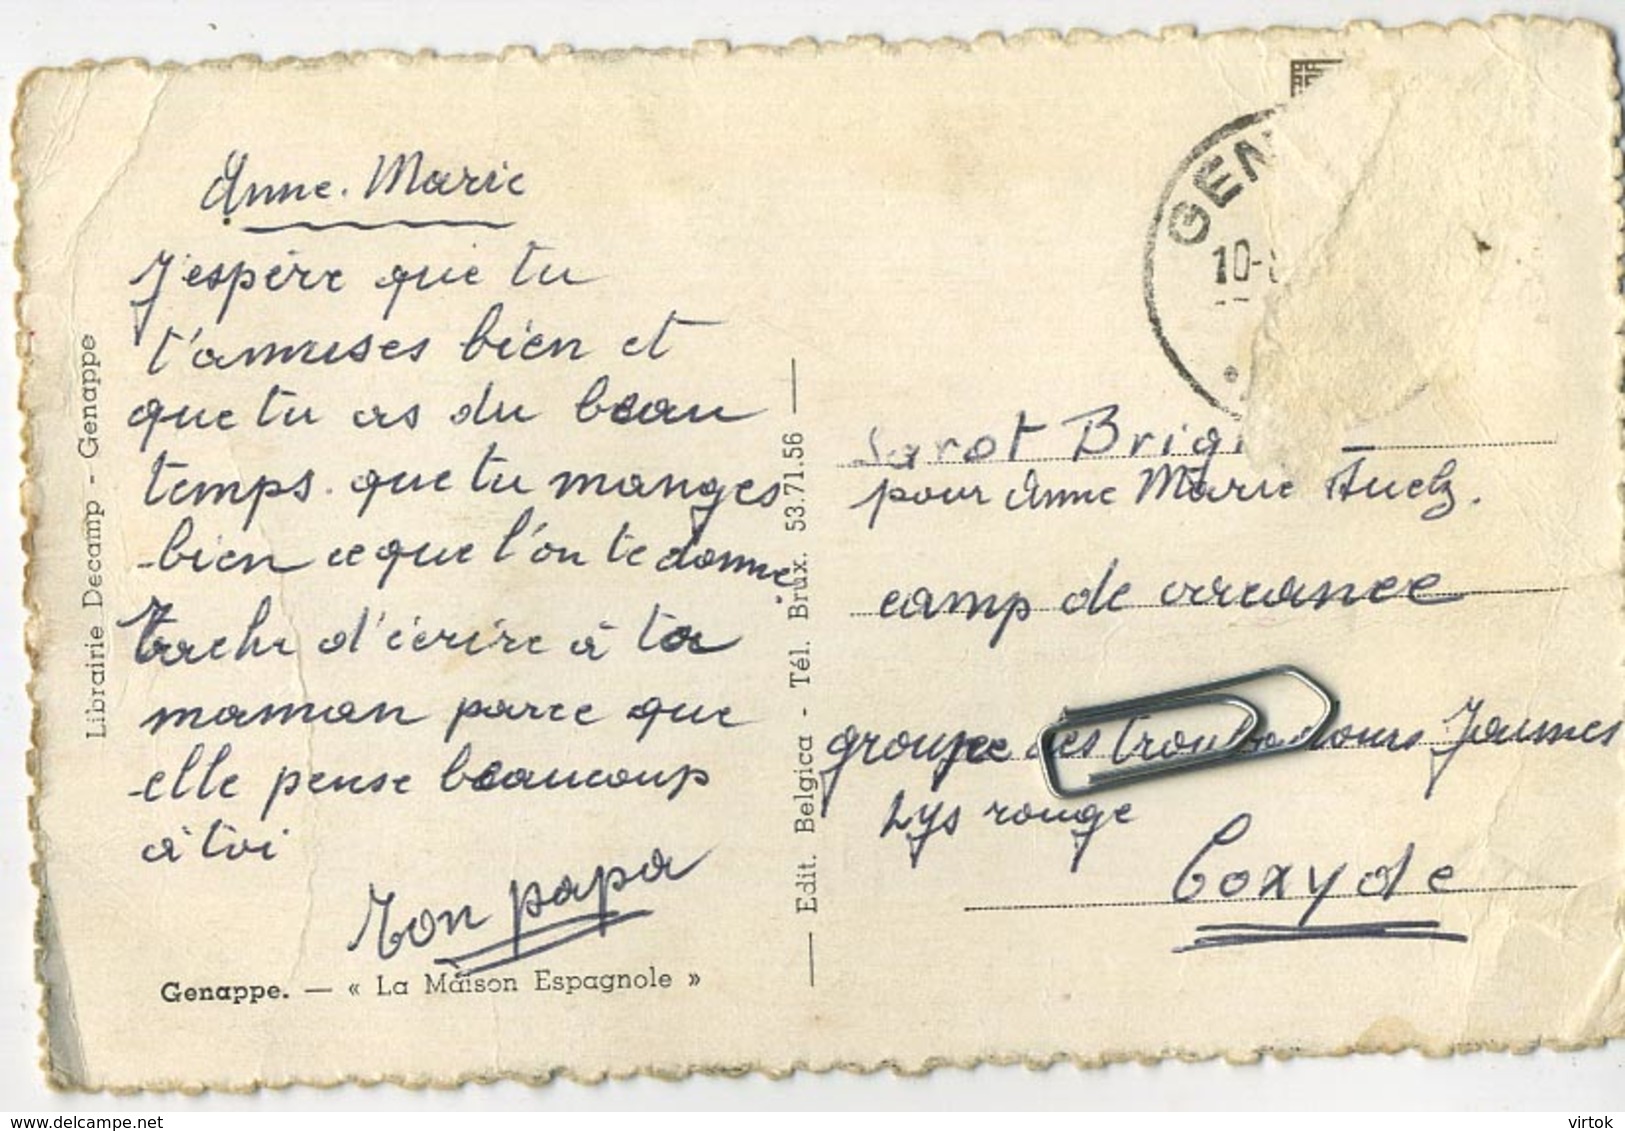 Anne. Marie
J'espère que tu
t'amuses bien et
que tu as du beau
temps. que tu manges
bien ce que l'on te donne.
Tache d'écrire à ta
maman parce que
elle pense beaucoup
à toi
Ton papa
Genappe. — « La Maison Espagnole »
Librairie Decamp - Genappe
Edit. Belgica - Tél. Brux. 53.71.56
GEN
10-
Sarot Brigi
pour Anne Marie
camp de
groupe des troubadours Jaunes
Lys rouge
Coxyde
www.delcampe.net
virtok